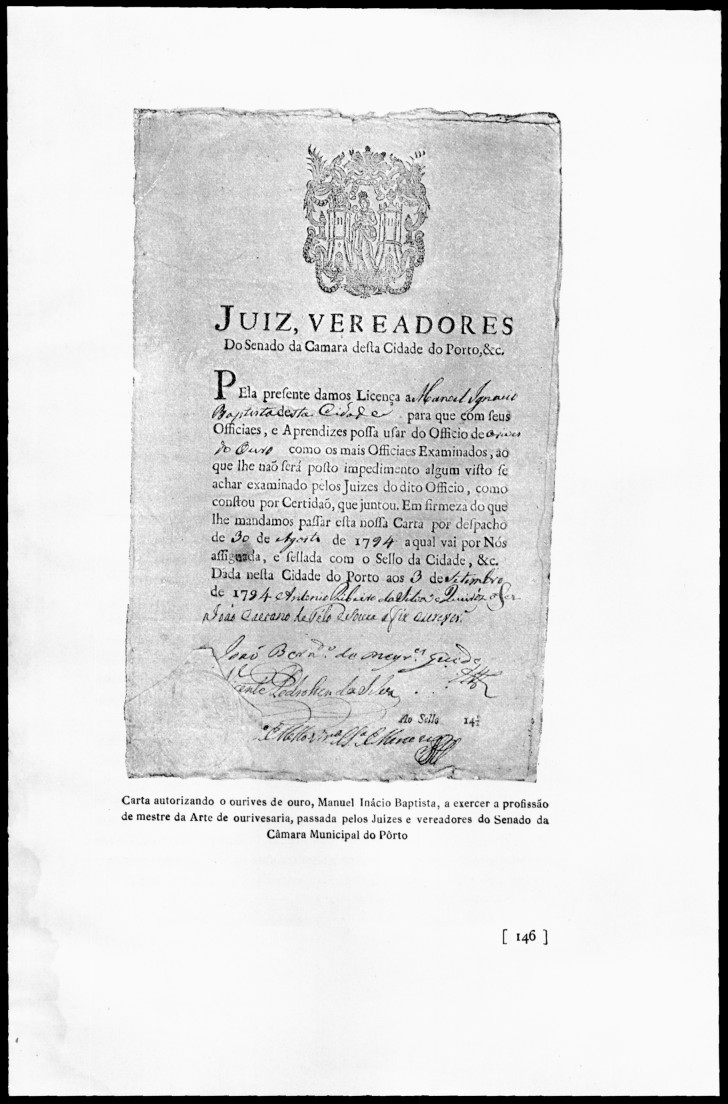 JUIZ, VEREADORES
Do Senado da Camara deſta Cidade do Porto, &c.
PEla preſente damos Licença a Manoel Ignacio
Baptista desta Cidade para que com ſeus
Officiaes, e Aprendizes poſſa uſar do Officio de
do Ouro como os mais Officiaes Examinados, ao
que lhe naõ ſerá poſto impedimento algum viſto ſe
achar examinado pelos Juizes do dito Officio, como
conſtou por Certidaõ, que juntou. Em firmeza do que
lhe mandamos paſſar eſta noſſa Carta por deſpacho
de 30 de Agosto de 1794 a qual vai por Nós
aſſignada, e ſellada com o Sello da Cidade, &c.
Dada neſta Cidade do Porto aos 3 de Setembro
de 1794 Antonio Ribeiro da Silva
João Caetano de
João
Pedro da Silva
Ao Sello 14
Carta autorizando o ourives de ouro, Manuel Inácio Baptista, a exercer a profissão
de mestre da Arte de ourivesaria, passada pelos Juizes e vereadores do Senado da
Câmara Municipal do Pôrto
[ 146 ]